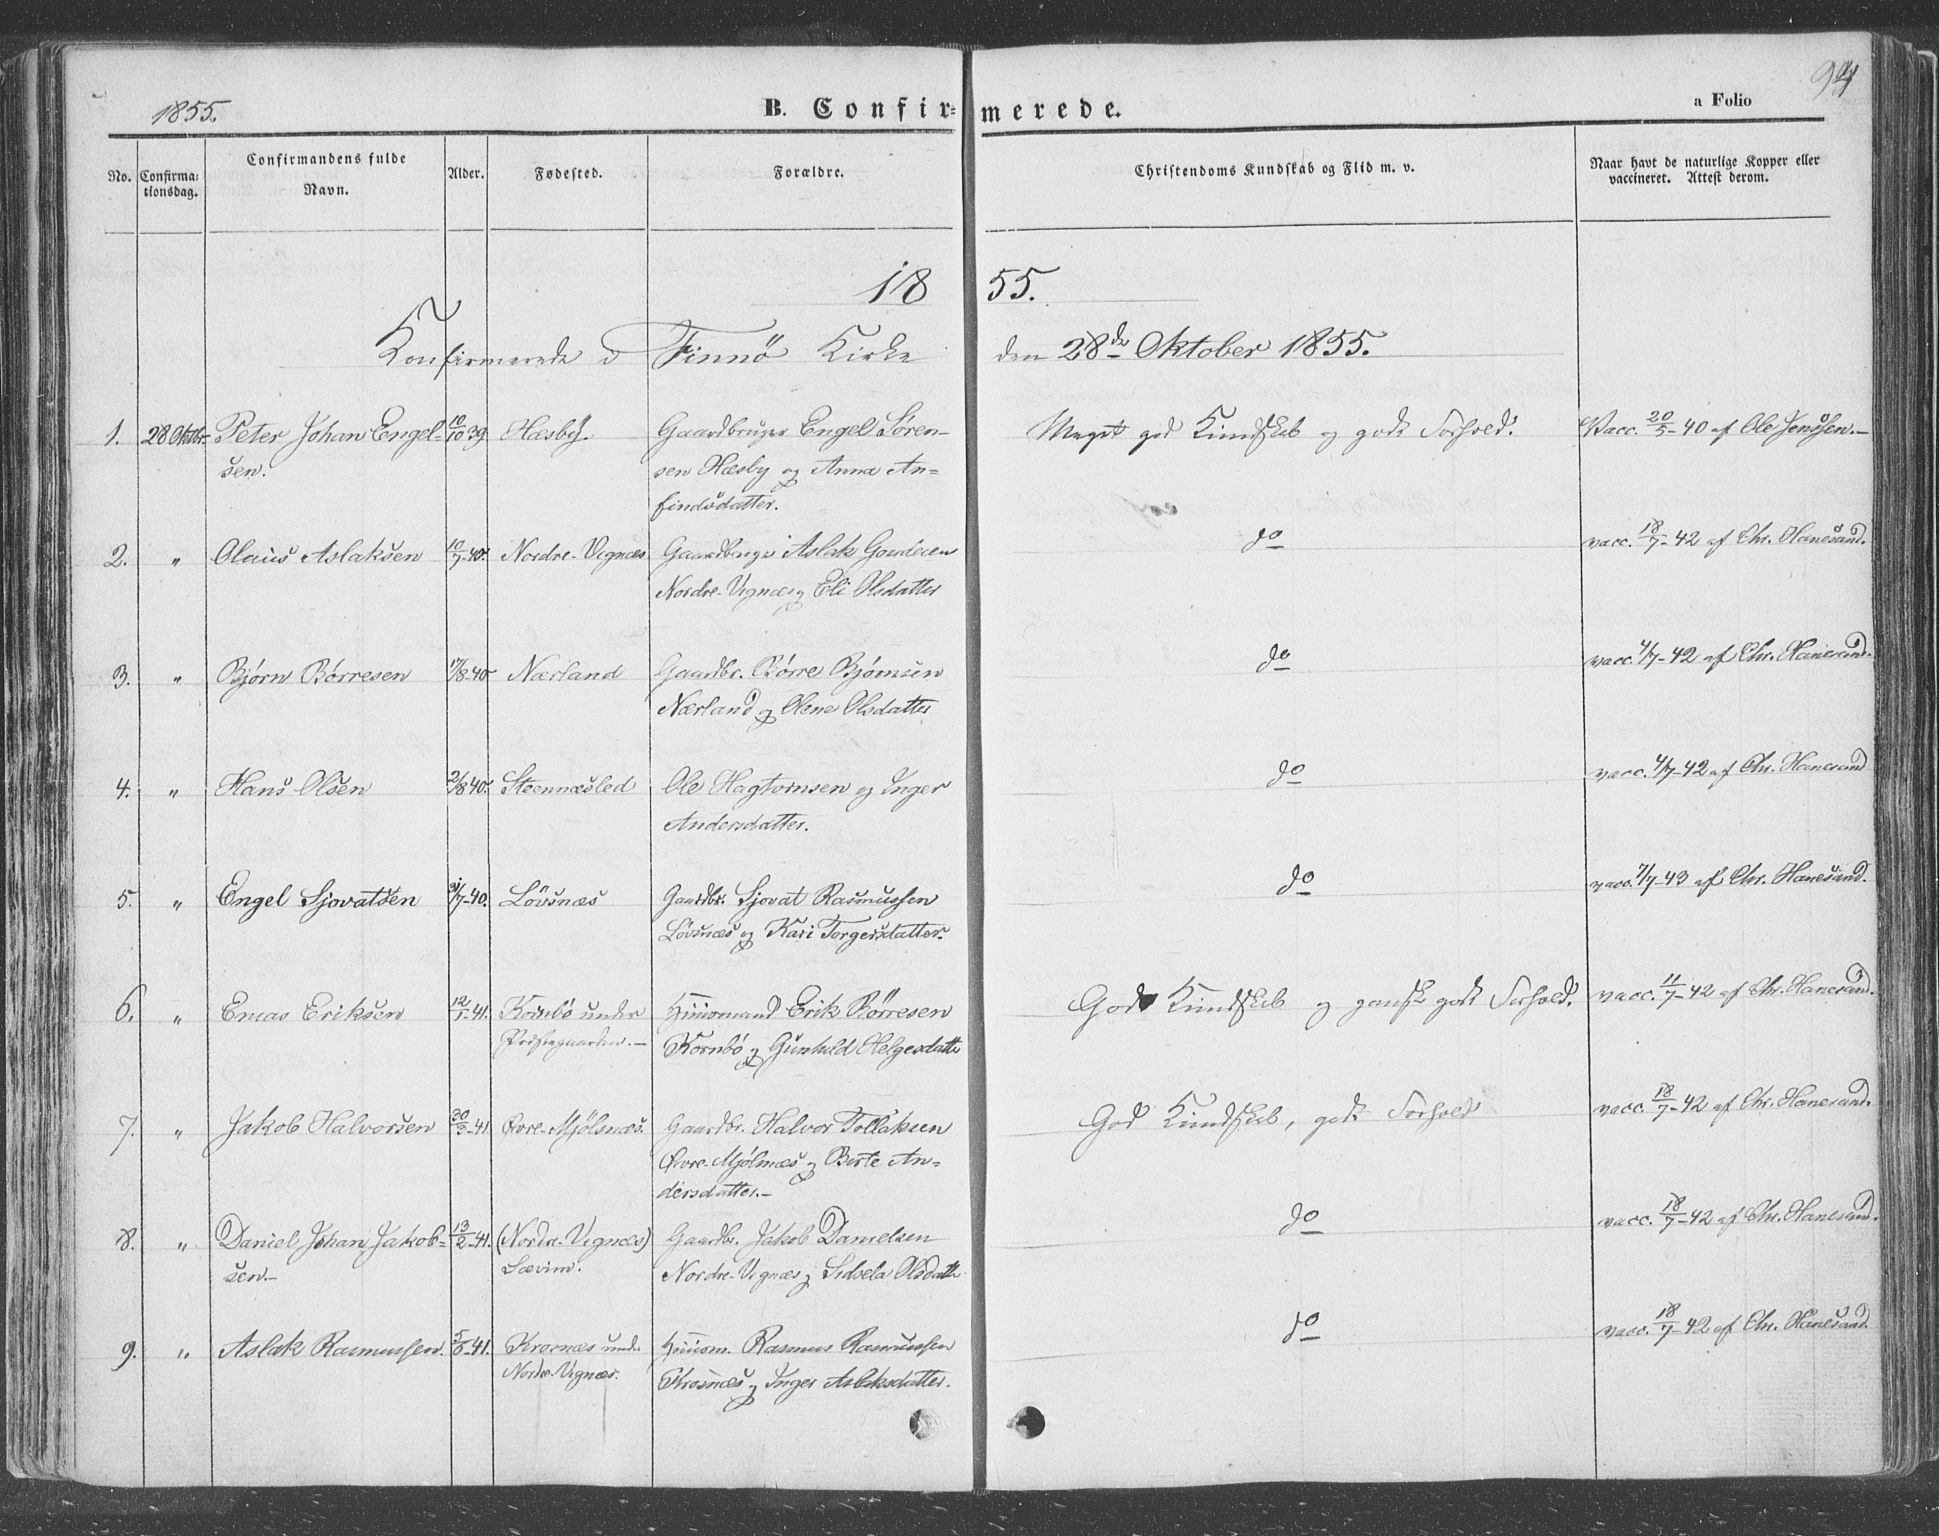 1855.
B. Confirmerede.
a Folio
94
No.
Confirmationsdag.
Confirmandens fulde Navn.
Alder.
Fødested.
Forældre.
Christendoms Kundskab og Flid m. v.
Naar havt de naturlige Kopper eller vaccineret. Attest derom.
1855.
Konfirmerede i Finnö Kirke den 28de Oktober 1855.
1. 28 Oktbr. Peter Johan Engel- 10/10 39. Hæsby. Gaardbruger Engel Sören- Meget god Kundskab og godt Forhold. Vacc. 20/5-40 af Ole Jenssen.-
sen. sen Hæsby og Anna An=
findsdatter.
2. " Olaus Aslaksen 10/7-40. Nordre-Vignæs Gaardbruger Aslak do vacc. 18/7-42 af Chr. Hanesand.
Nordre-Vignæs og Eli Olsdatter
3. " Bjørn Børresen 17/8-40 Nærland Gaardbr. Børre Bjørnsen do vacc. 4/7-42 af Chr. Hanesand.
Nærland og Olene Olsdatter
4. " Hans Olsen 2/8 40. Steennæsled Ole Hagtornsen og Inger do vacc. 4/7-42 af Chr. Hanesand
Andersdatter.
5. " Engel Sjovatsen 31/7-40. Lövsnæs Gaardbr. Sjovat Rasmussen do vacc. 7/7-43 af Chr. Hanesand.
Lövsnæs og Kari Torgersdatter.
6. " Enias Eriksen 12/1-41. Kornbö under Huusmand Erik Börresen God Kundskab og ganske godt Forhold. vacc. 11/7-42 af Chr. Hanesand.
Præstegaarden.- Kornbö og Gunhild Helgesdatter
7. " Jakob Halvorsen 30/3-41 Øvre-Mjølsnæs. Gaardbr. Halvor Tollaksen God Kundskab, godt Forhold vacc. 18/7-42 af Chr. Hanesand.
Øvre-Mjølsnæs og Berte An=
dersdatter.-
8. " Daniel Johan Jakob= 13/2-41. (Nordre-Vignæs) Gaardbr. Jakob Danielsen do vacc. 18/7-42 af Chr. Hanesand.
sen.- Sævim. Nordre-Vignæs og Sidsela Olsdatter
9. " Aslak Rasmussen. 5/6-41. Krosnæs und. Huusm. Rasmus Rasmussen do vacc. 18/7-42 af Chr. Hanesand.
Nordre-Vignæs. Krosnæs og Inger Aslaksdatter.